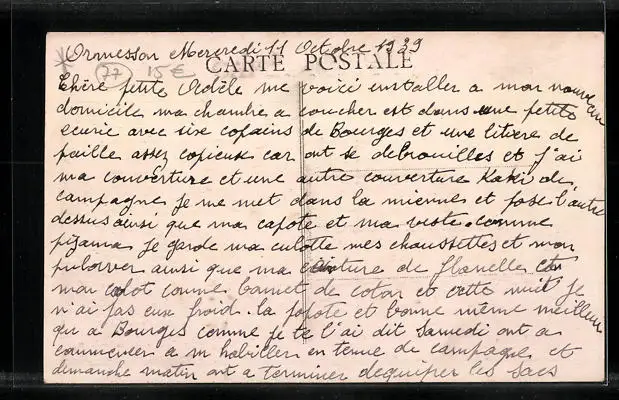 Ormesson Mercredi 11 Octobre 1939
77 15 €
CARTE POSTALE
Chère petite Adèle me voici installer a mon nouveau
domicile ma chambre a coucher est dans une petite
ecurie avec six copains de Bourges et une litiere de
paille assez copieuse car ont se debrouilles et j'ai
ma couverture et une autre couverture Kaki de
campagne je me met dans la miennes et pose l'autre
dessus ainsi que ma capote et ma veste. comme
pijama je garde ma culotte mes chaussettes et mon
pulorver ainsi que ma ceinture de flanelles et
mon calot comme bonnet de coton et cette nuit je
n'ai pas eux froid. la popote et bonne même meilleur
qu a Bourges comme je te l'ai dit Samedi ont a
commencer a m habiller en tenue de campagne et
dimanche matin ont a terminer dequiper les sacs